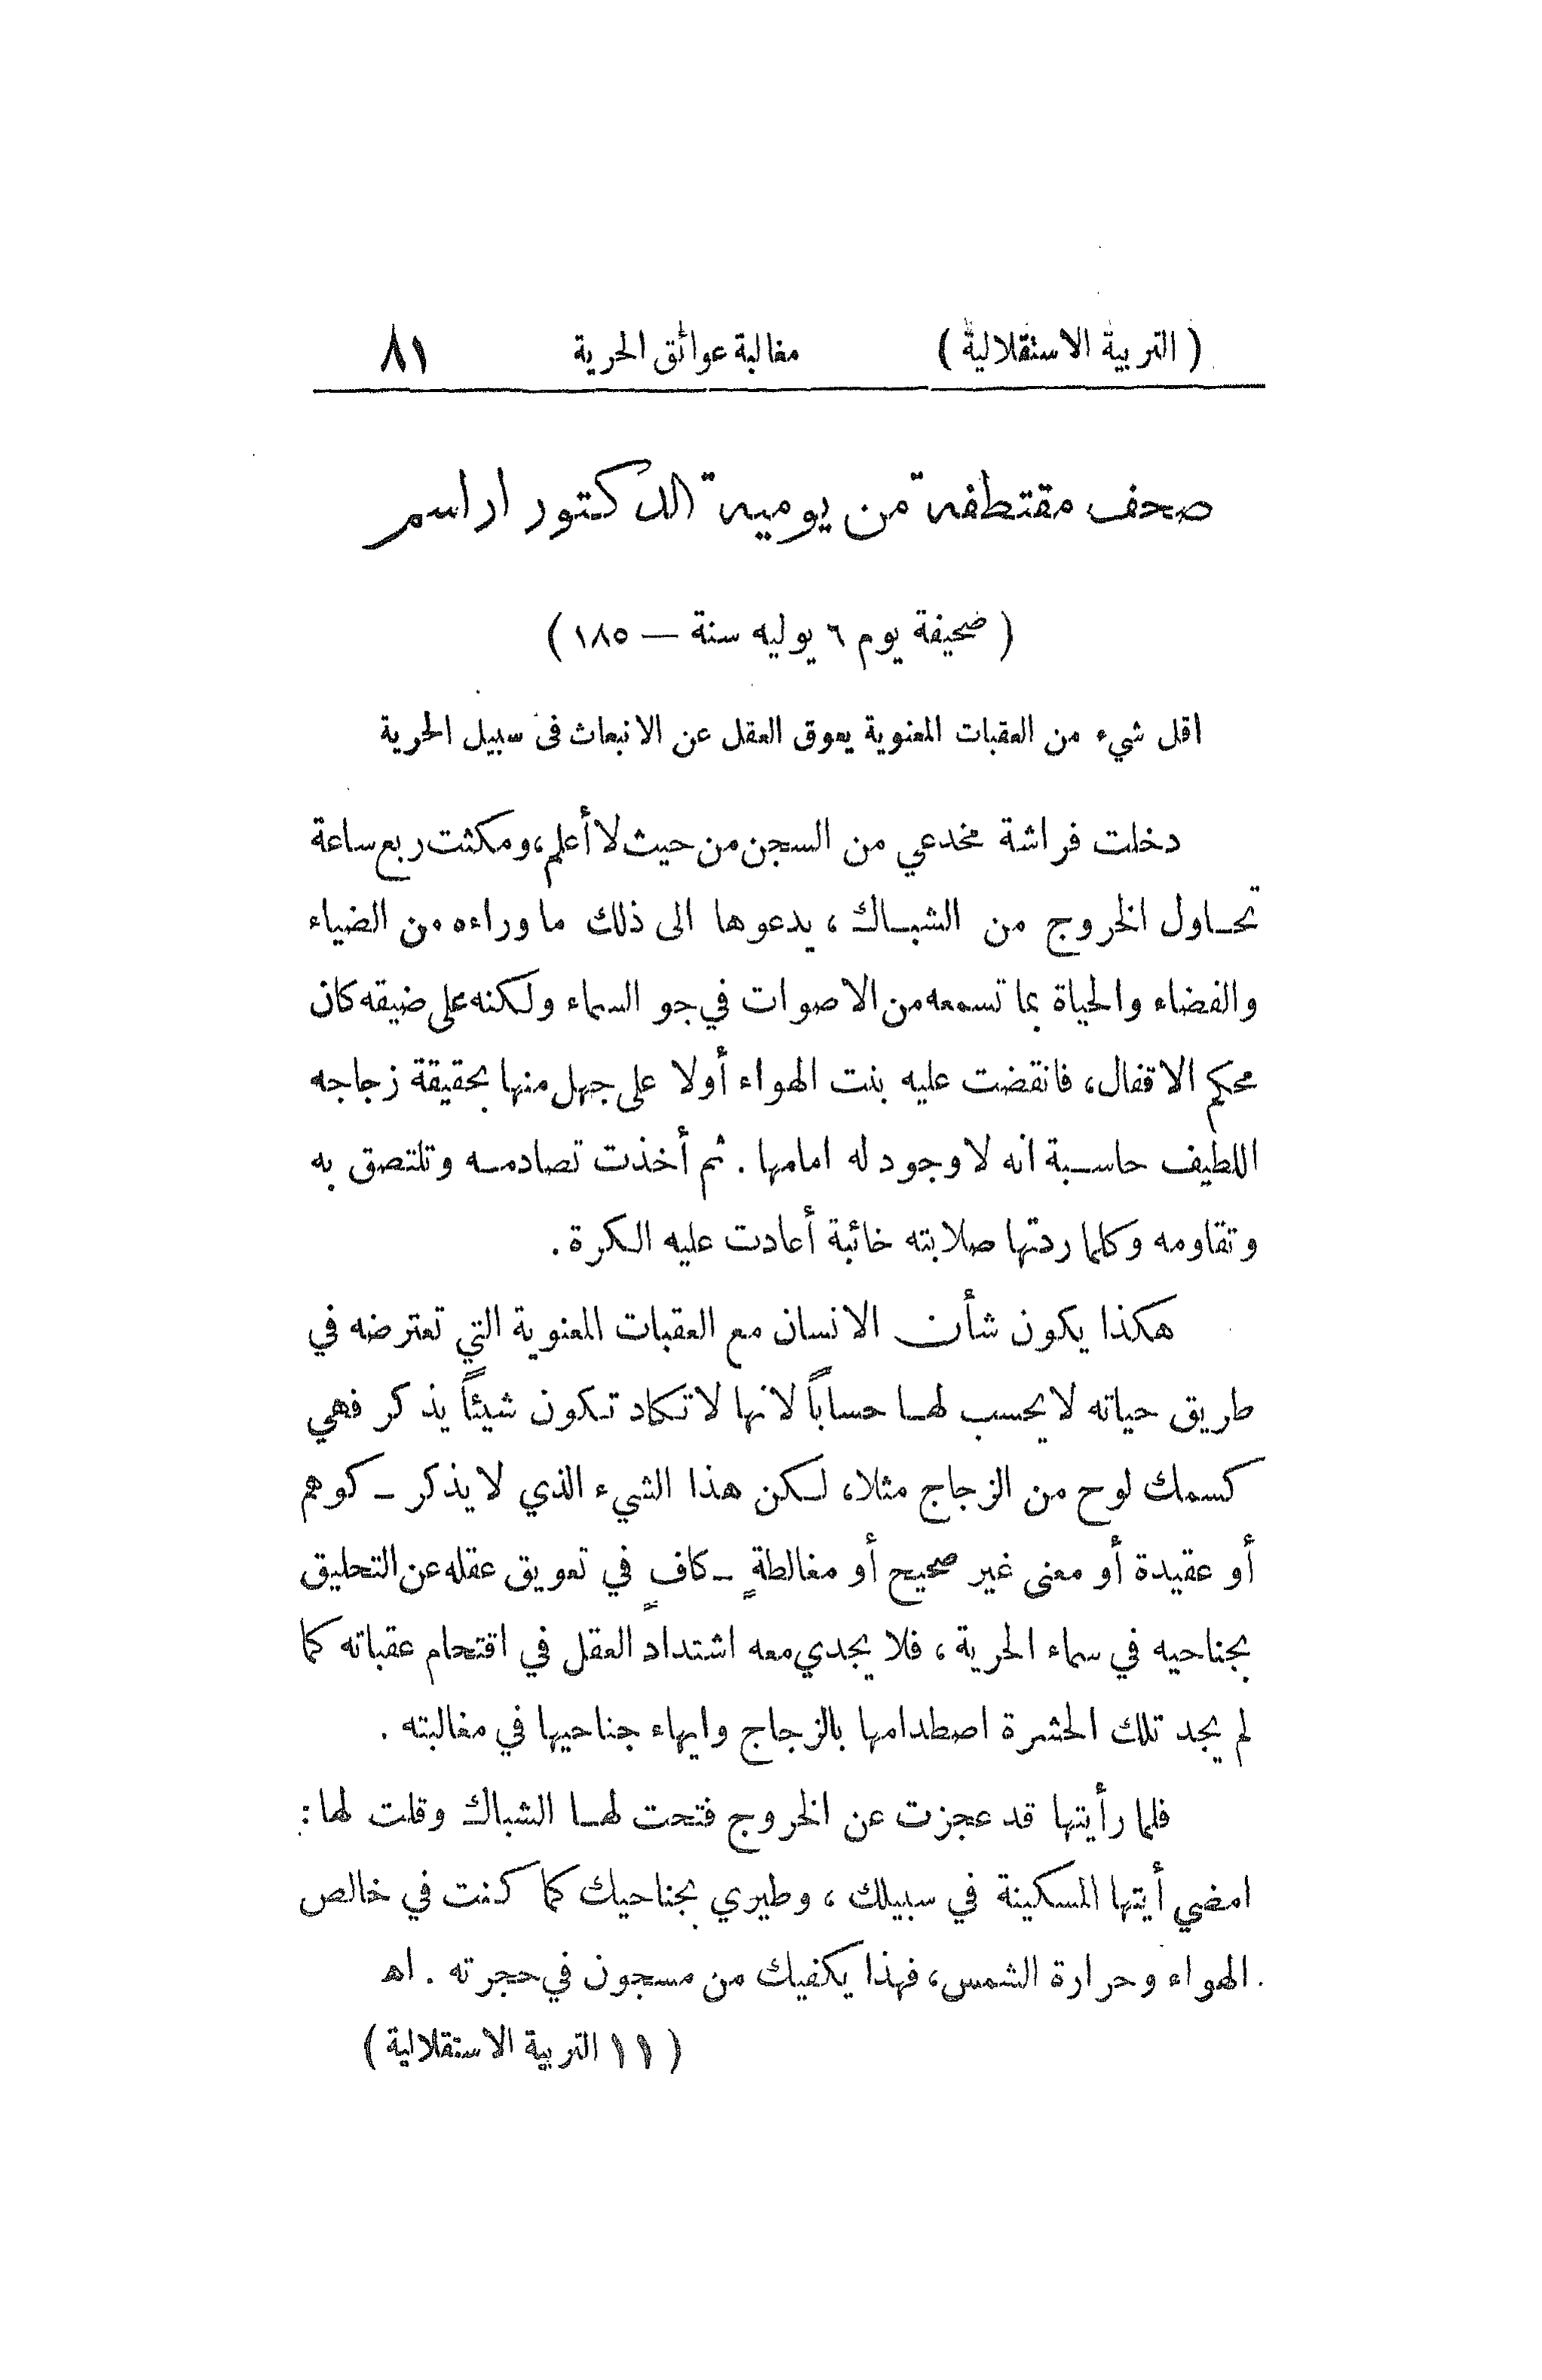 ( التربية الاستقلالية ) مغالبة عوائق الحرية ٨١
صحف مقتطفة من يومية الدكتور اراسم
( صحيفة يوم ٦ يوليه سنة — ١٨٥ )
اقل شيء من العقبات المعنوية يعوق العقل عن الانبعاث فى سبيل الحرية
دخلت فراشة مخدعي من السجن من حيث لا أعلم، ومكثت ربع ساعة
تحاول الخروج من الشباك ، يدعوها الى ذلك ما وراءه من الضياء
والفضاء والحياة بما تسمعه من الاصوات في جو السماء ولكنه على ضيقه كان
محكم الاقفال، فانقضت عليه بنت الهواء أولا على جهل منها بحقيقة زجاجه
اللطيف حاسبة انه لا وجود له امامها . ثم أخذت تصادمه وتلتصق به
وتقاومه وكلما ردتها صلابته خائبة أعادت عليه الكرة .
هكذا يكون شأن الانسان مع العقبات المعنوية التي تعترضه في
طريق حياته لا يحسب لها حساباً لانها لا تكاد تكون شيئاً يذكر فهي
كسمك لوح من الزجاج مثلا، لكن هذا الشيء الذي لا يذكر ـ كوهم
أو عقيدة أو معنى غير صحيح أو مغالطةٍ ـ كافٍ في تعويق عقله عن التحليق
بجناحيه في سماء الحرية ، فلا يجدي معه اشتداد العقل في اقتحام عقباته كما
لم يجد تلك الحشرة اصطدامها بالزجاج وايهاء جناحيها في مغالبته .
فلما رأيتها قد عجزت عن الخروج فتحت لها الشباك وقلت لها :
امضي أيتها المسكينة في سبيلك ، وطيري بجناحيك كما كنت في خالص
الهواء وحرارة الشمس، فهذا يكفيك من مسجون في حجرته . اه
( ١١ التربية الاستقلالية )